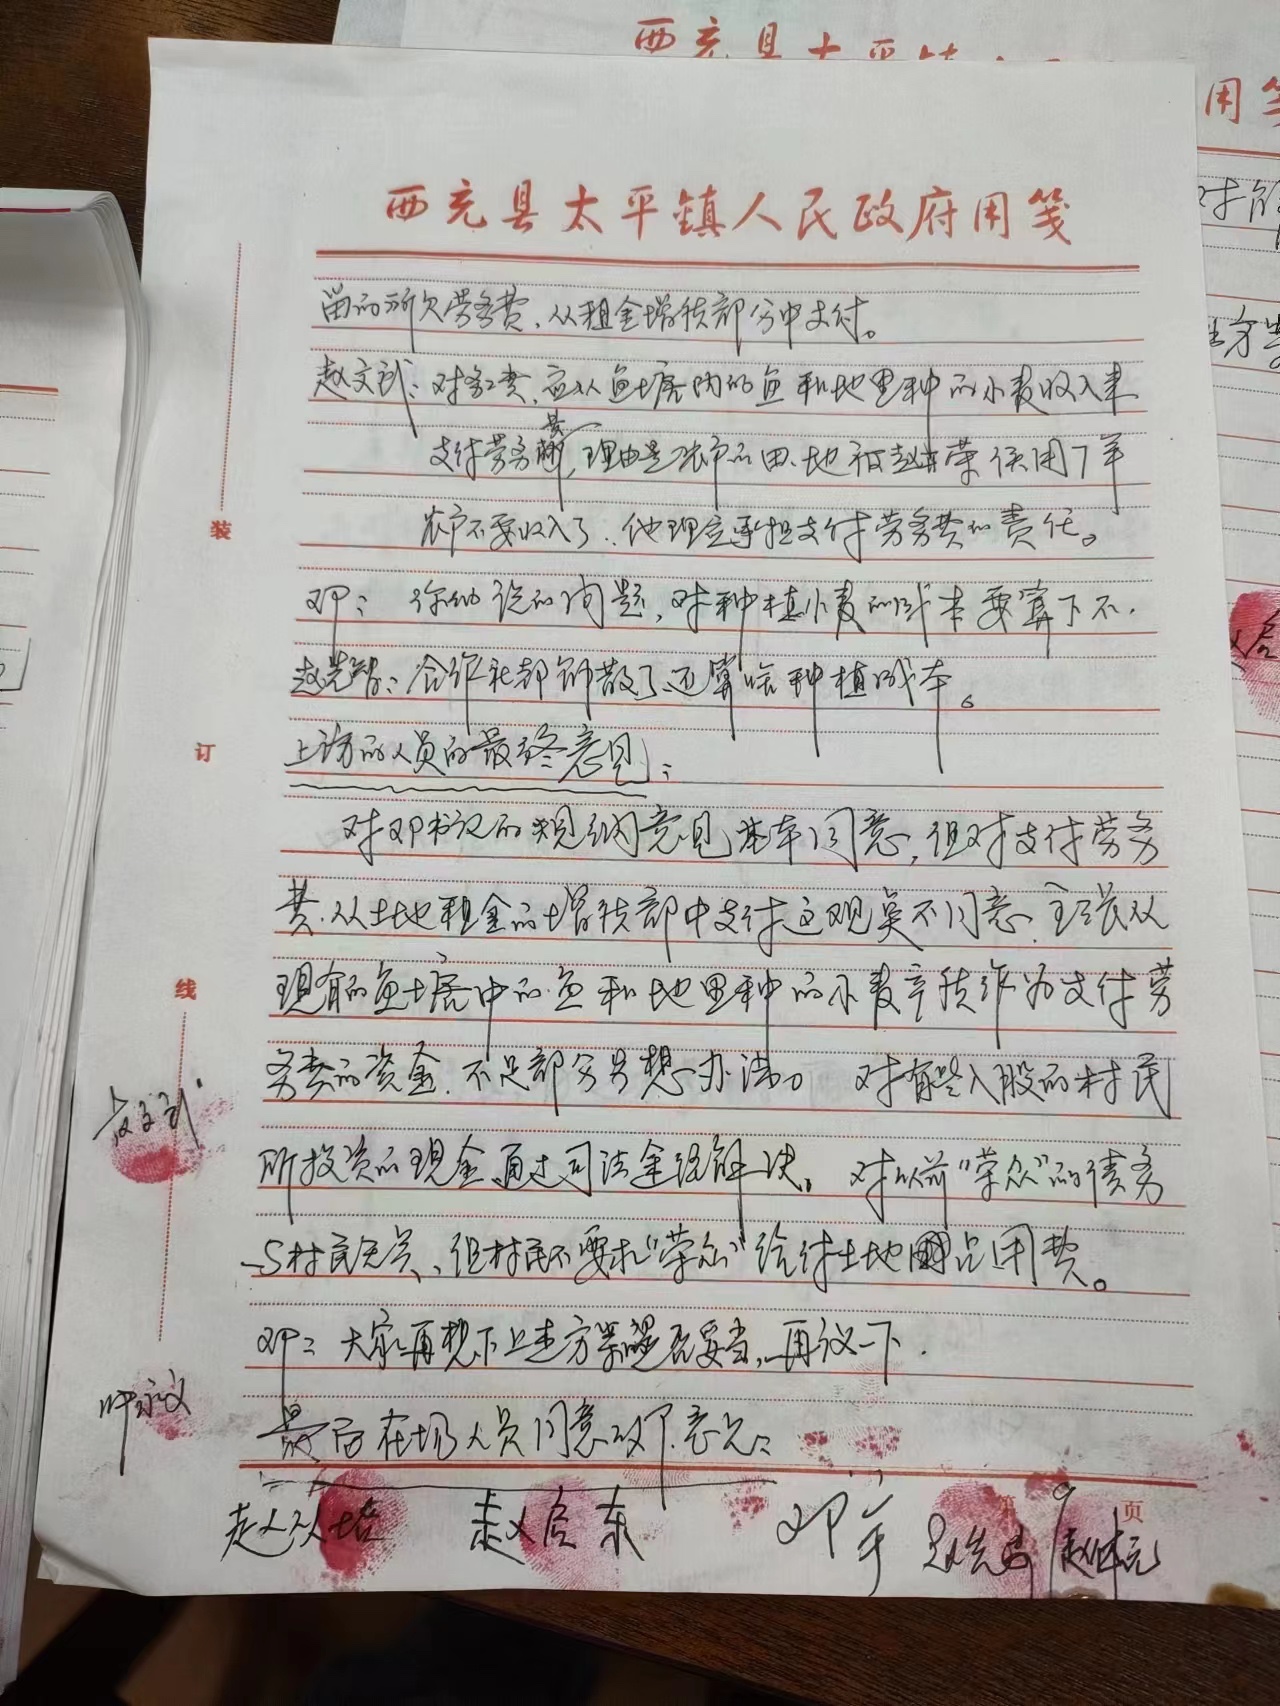 西充县太平镇人民政府用笺
留的所欠劳务费、从租金增我部分中支付。
赵文武：对务工费，应从鱼塘内的鱼和地里种的小麦收入来
支付劳务费，理由是农户的田、地被赵荣使用7年
农户不要收入了、他理应承担支付劳务费的责任。
邓：你们说的问题，对种植小麦的成本要算下不.
赵先智：合作社都解散了还算啥种植成本。
上访的人员的最终意见：
对邓书记的规纳意见基本同意，但对支付劳务
费、从土地租金的增我部中支付这观点不同意、主张从
现有的鱼塘中的鱼和地里种的小麦辛我作为支付劳
务费的资金、不足部分另想办法。对有些入股的村民
所投资的现金通过司法途径解决。对以前"荣众"的债务
与村民无关、但村民不要求"荣众"给付土地占用费。
邓：大家再想下上述方案是否妥当，再议一下.
最后在场人员同意邓意见：
装
订
线
赵文武
叶永文
赵从培
赵启东
邓
第9页